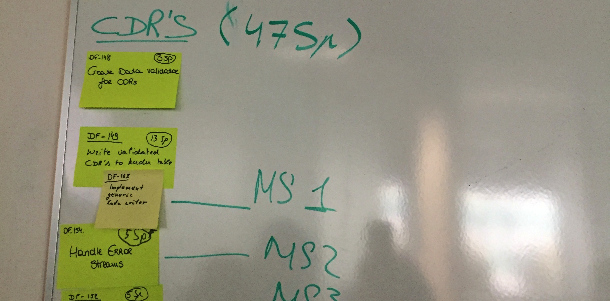 CDR'S (47Sp)
DF-148 5Sp
Create Data validator
for CDRs
DF-149 13 Sp
Write validated
CDR's to kudu table
Implement
generic
data writer
MS 1
5 Sp
Handle ERROR
Streams
MS2
DF-152 5Sp
MS3